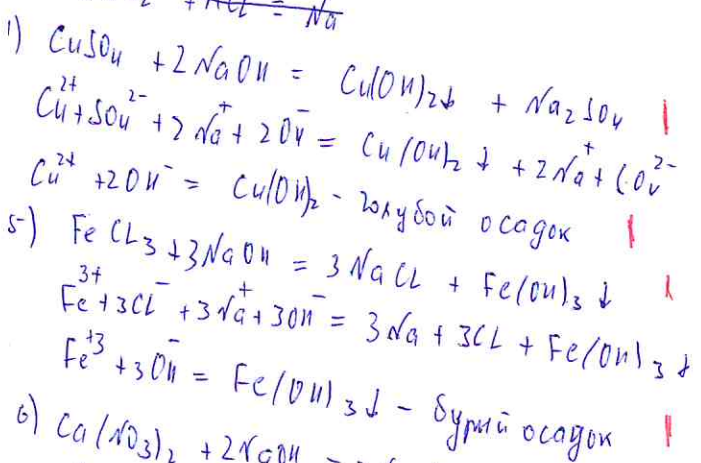 + HCl = Na
1) CuSO4 + 2NaOH = Cu(OH)2↓ + Na2SO4
Cu²⁺ + SO4²⁻ + 2Na⁺ + 2OH⁻ = Cu(OH)2↓ + 2Na⁺ + SO4²⁻
Cu²⁺ + 2OH⁻ = Cu(OH)2 - голубой осадок
5) FeCL3 + 3NaOH = 3NaCL + Fe(OH)3↓
Fe³⁺ + 3CL⁻ + 3Na⁺ + 3OH⁻ = 3Na + 3CL + Fe(OH)3↓
Fe⁺³ + 3OH⁻ = Fe(OH)3↓ - бурый осадок
6) Ca(NO3)2 + 2NaOH =